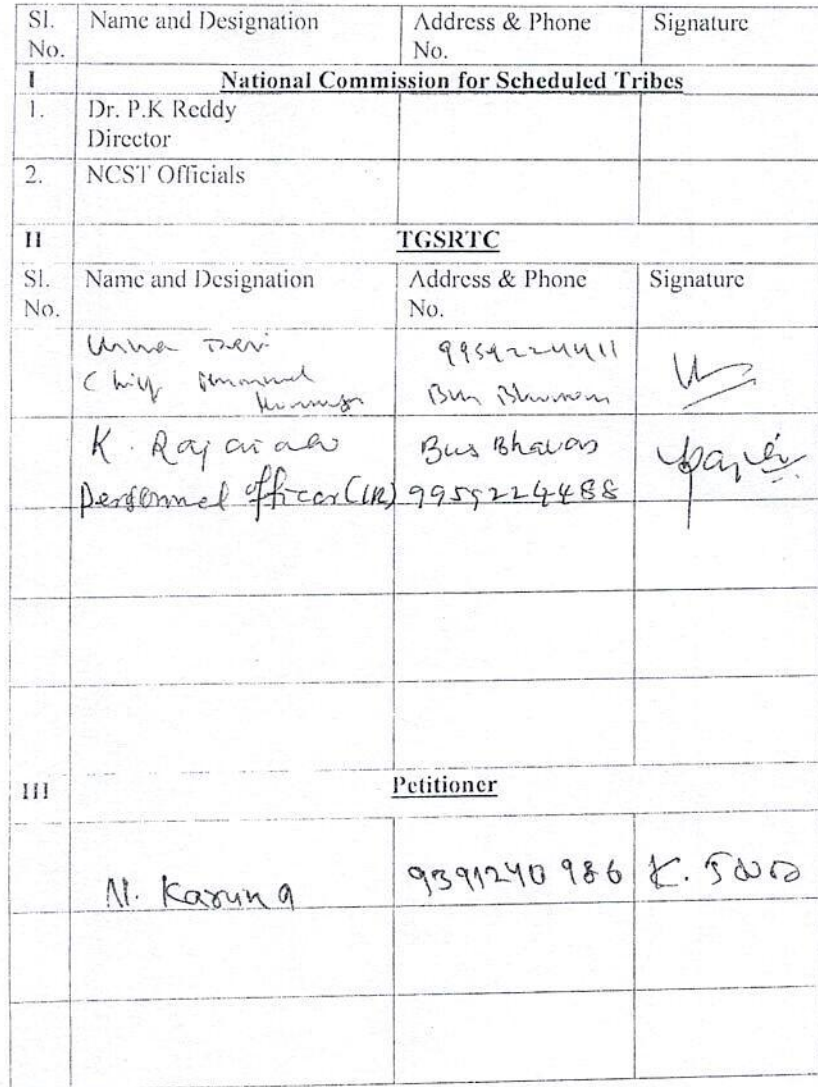 Sl. No. Name and Designation Address & Phone No. Signature
I National Commission for Scheduled Tribes
1. Dr. P.K Reddy
Director
2. NCST Officials
II TGSRTC
Sl. No. Name and Designation Address & Phone No. Signature
Uma Devi 9959224411
Chief Personnel Manager Bus Bhavan
K. Bus Bhavan
Personnel Officer (IR) 9959224488
III Petitioner
N. Karuna 9391240986 K.